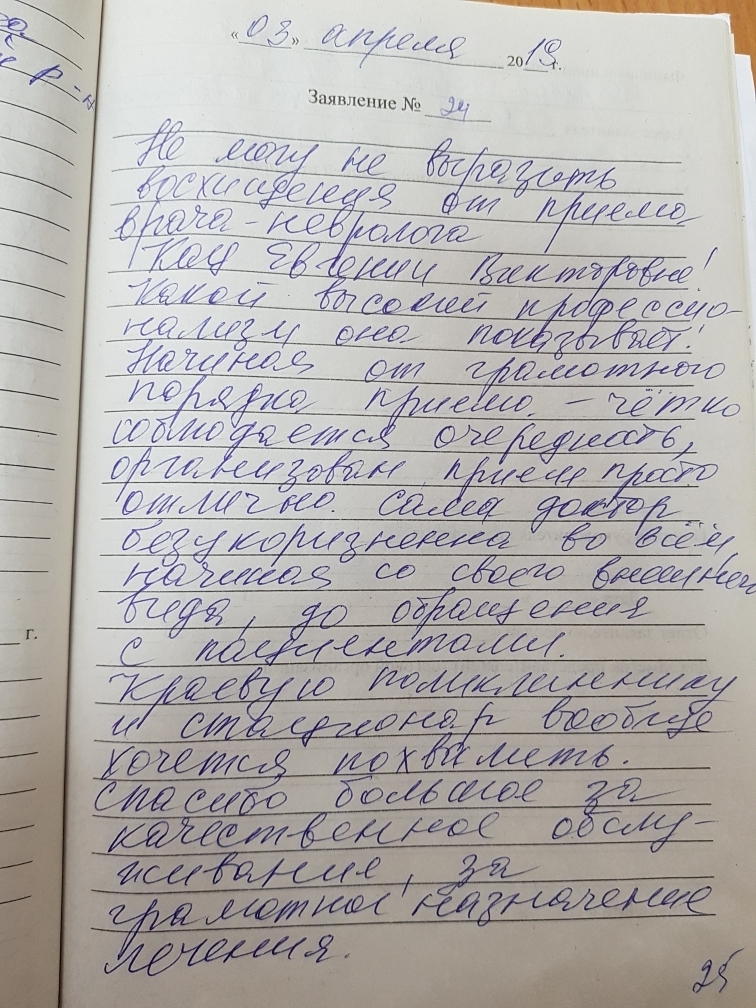 «03» апреля 2019г.
Заявление № 24
Не могу не выразить
восхищения от приема
врача-невролога
Кац Евгении Викторовне!
Какой высокий профессио-
нализм она показывает!
Начиная от грамотного
порядка приема – чётко
соблюдается очередность,
организован прием просто
отлично. Сама доктор
безукоризненна во всём,
начиная со своего внешнего
вида, до обращения
с пациентами.
Краевую поликлиннику
и стационар вообще
хочется похвалить.
Спасибо большое за
качественное обслу-
живание, за
грамотное назначение
лечения.
г.
р-н
25